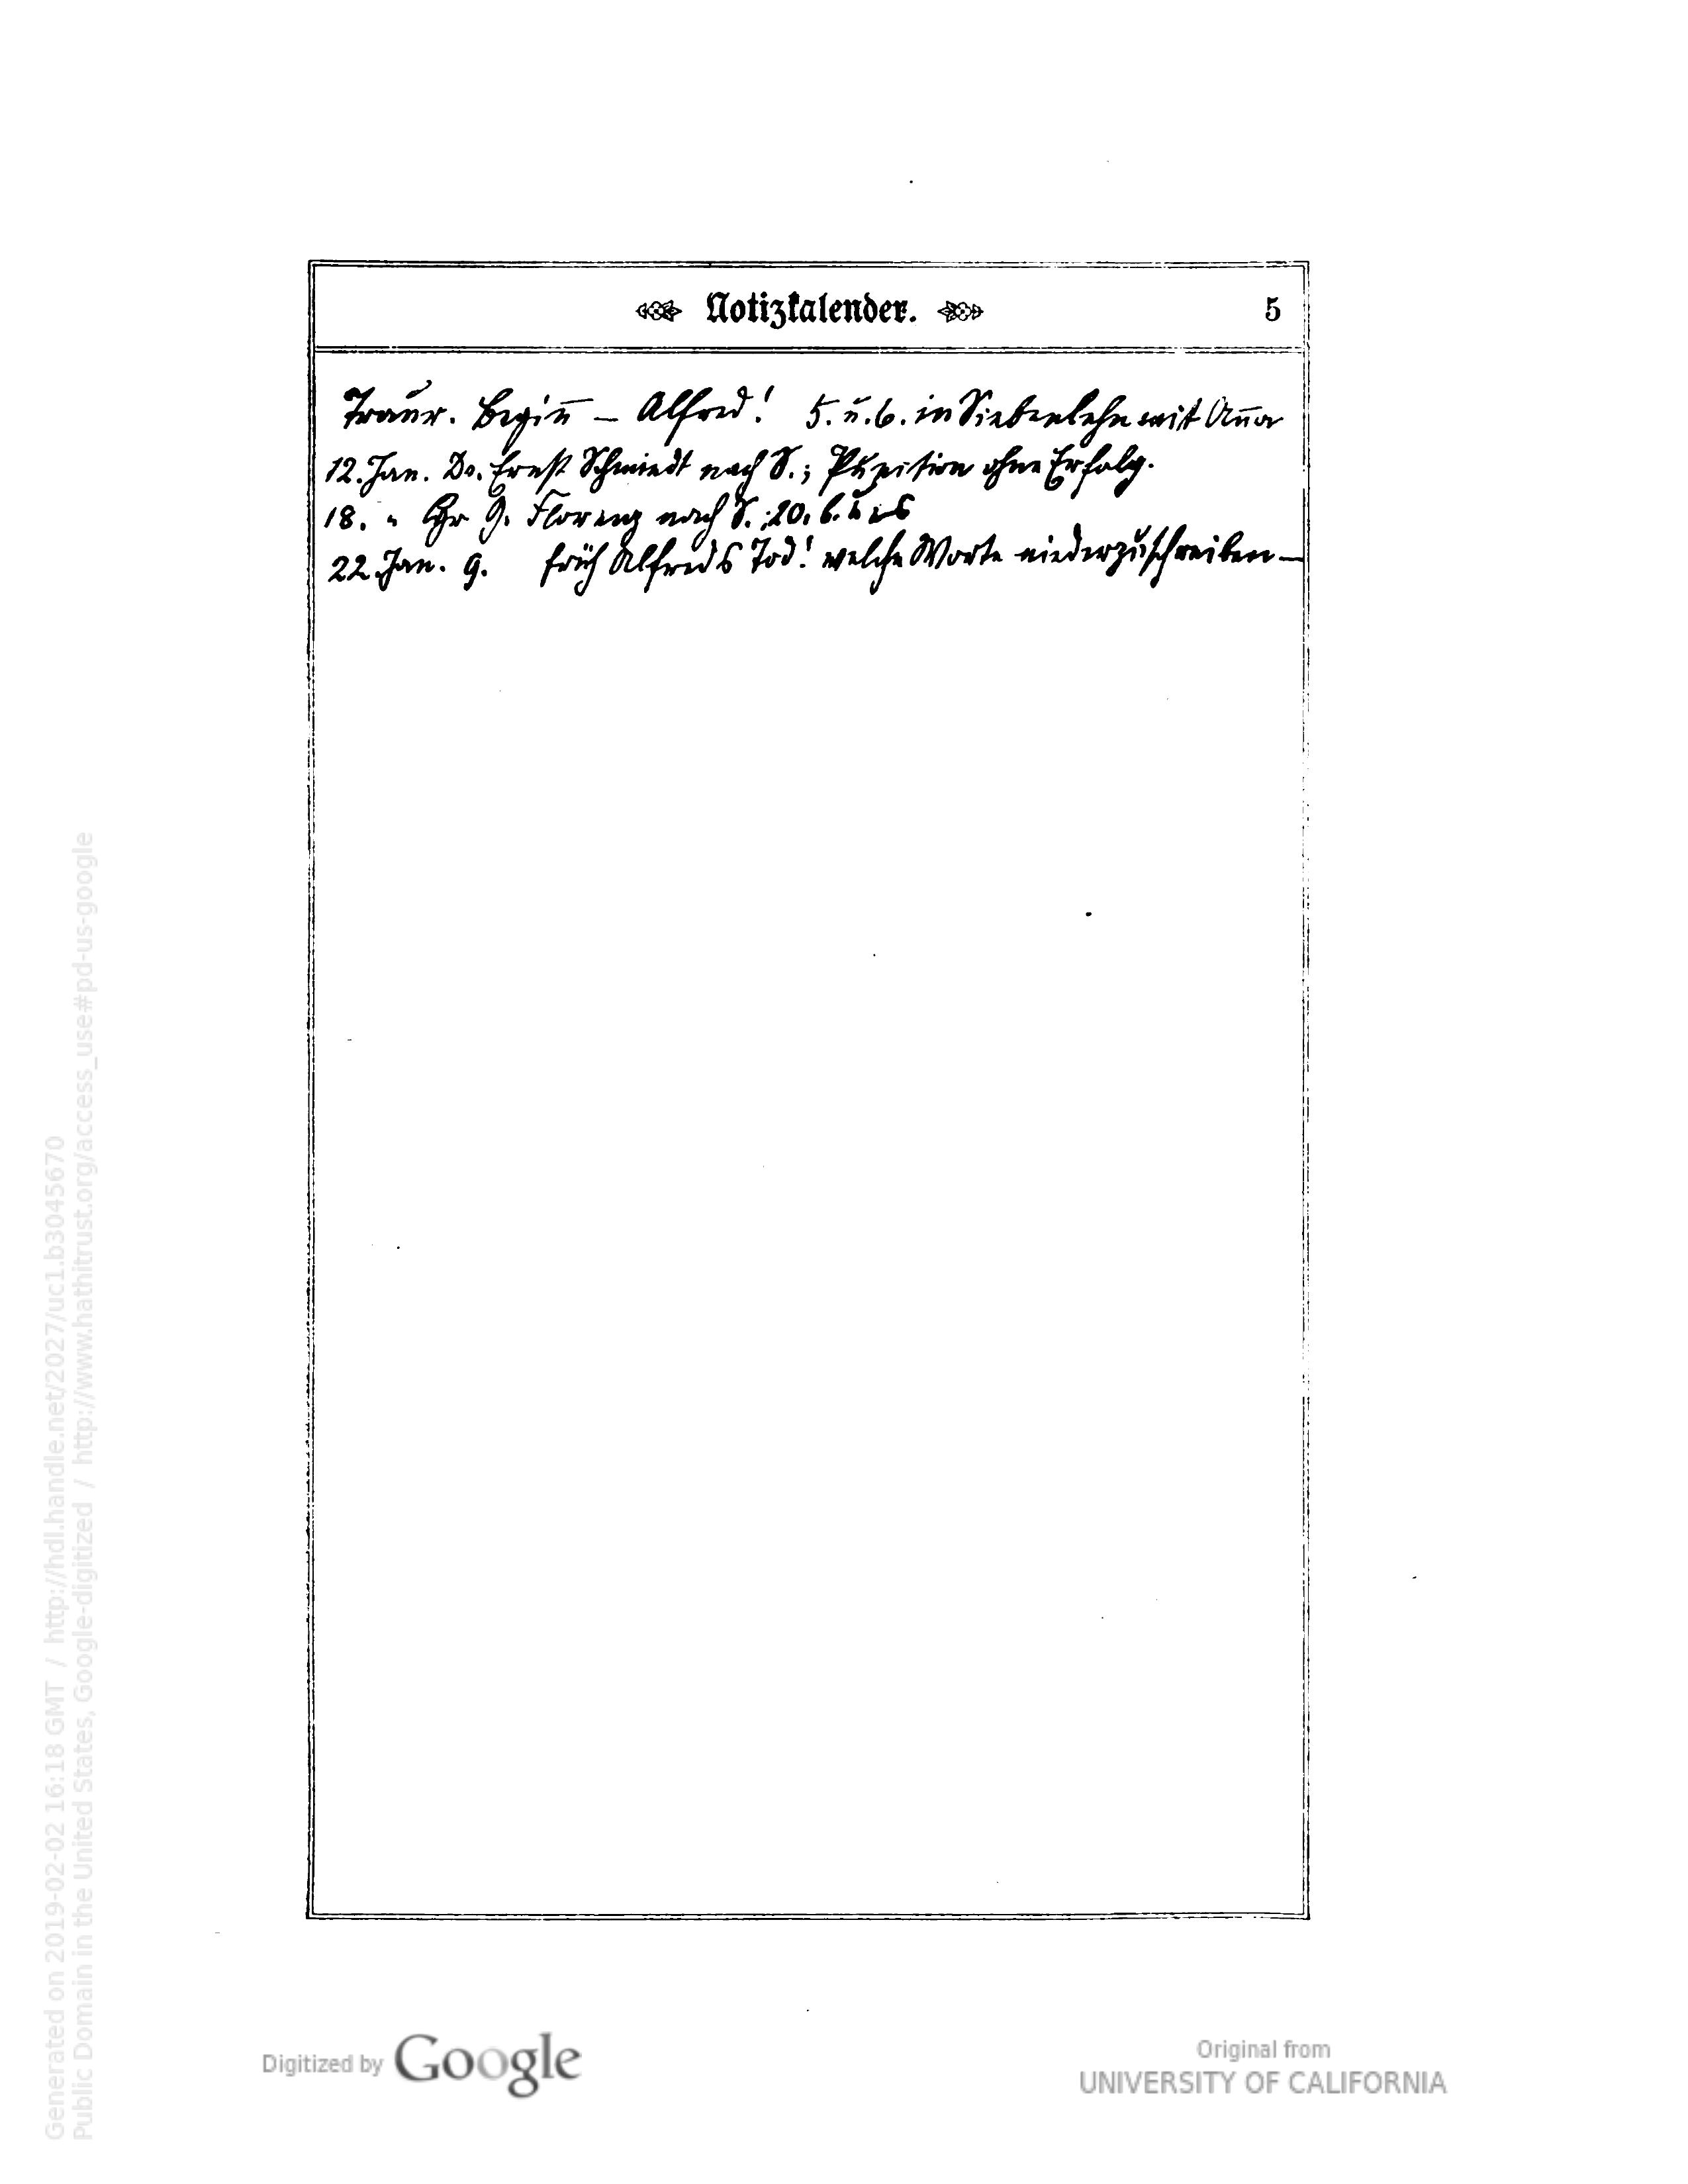 Notizkalender. 5
Traur. Begin̄ – Alfred! 5. u. 6. in Siebenlehn mit An̄a
12. Jan. Dr. Ernst Schmiedt nach S.; ohne Erfolg.
18. " Florenz nach S.; 20.
22. Jan. 9. früh Alfreds Tod! welche Worte niederzuschreiben –
Generated on 2019-02-02 16:18 GMT / http://hdl.handle.net/2027/uc1.b3045670
Public Domain in the United States, Google-digitized / http://www.hathitrust.org/access_use#pd-us-google
Digitized by Google
Original from
UNIVERSITY OF CALIFORNIA